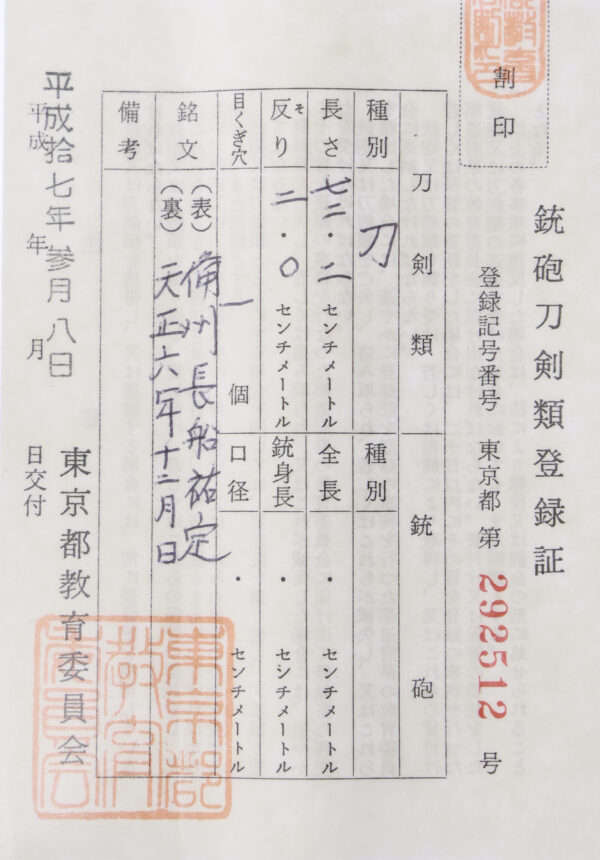 割印
銃砲刀剣類登録証
登録記号番号 東京都 第 292512 号
刀剣類
銃砲
種別 刀
種別
長さ 七二・二 センチメートル
全長 ・ センチメートル
反り そ 二・〇 センチメートル
銃身長 ・ センチメートル
目くぎ穴 一 個
口径 ・ センチメートル
銘文
(表) 備州長船祐定
(裏) 天正六年十二月日
備考
平成拾七年参月八日
平成 年 月 日交付
東京都教育委員会
東京都
教育
委員会